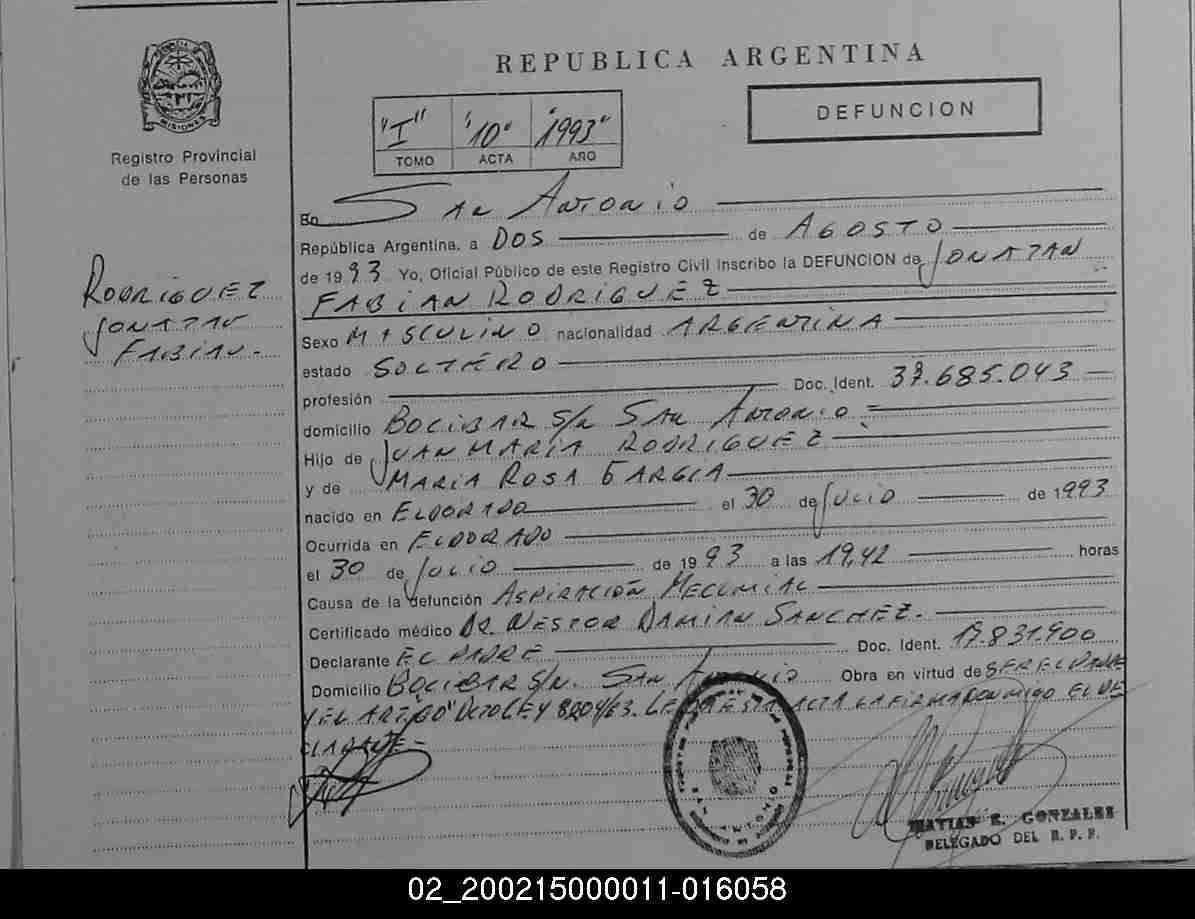 REPUBLICA ARGENTINA
MISIONES
Registro Provincial
de las Personas
"I" "10" "1993"
TOMO ACTA AÑO
DEFUNCION
En San Antonio
República Argentina, a DOS de AGOSTO
de 1993 Yo, Oficial Público de este Registro Civil inscribo la DEFUNCION de JONATAN
FABIAN RODRIGUEZ
RODRIGUEZ
JONATAN
FABIAN.-
Sexo MASCULINO nacionalidad ARGENTINA
estado SOLTERO
profesión Doc. Ident. 37.685.043
domicilio BOLIBAR S/N SAN ANTONIO
Hijo de JUAN MARIA RODRIGUEZ
y de MARIA ROSA GARCIA
nacido en ELDORADO el 30 de JULIO de 1993
Ocurrida en ELDORADO
el 30 de JULIO de 1993 a las 19,42 horas
Causa de la defunción ASPIRACIÓN MECONIAL
Certificado médico DR. NESTOR DAMIAN SANCHEZ.
Declarante EL PADRE Doc. Ident. 17.831.900
Domicilio BOLIBAR S/N. SAN ANTONIO Obra en virtud de SER EL PADRE
Y EL ART. DCTO LEY 8204/63. LEIDA ESTA ACTA LA FIRMA CONMIGO EL DE
CLARANTE-
SAN ANTONIO
MATIAS E. GONZALEZ
DELEGADO DEL R. P. P.
02_200215000011-016058